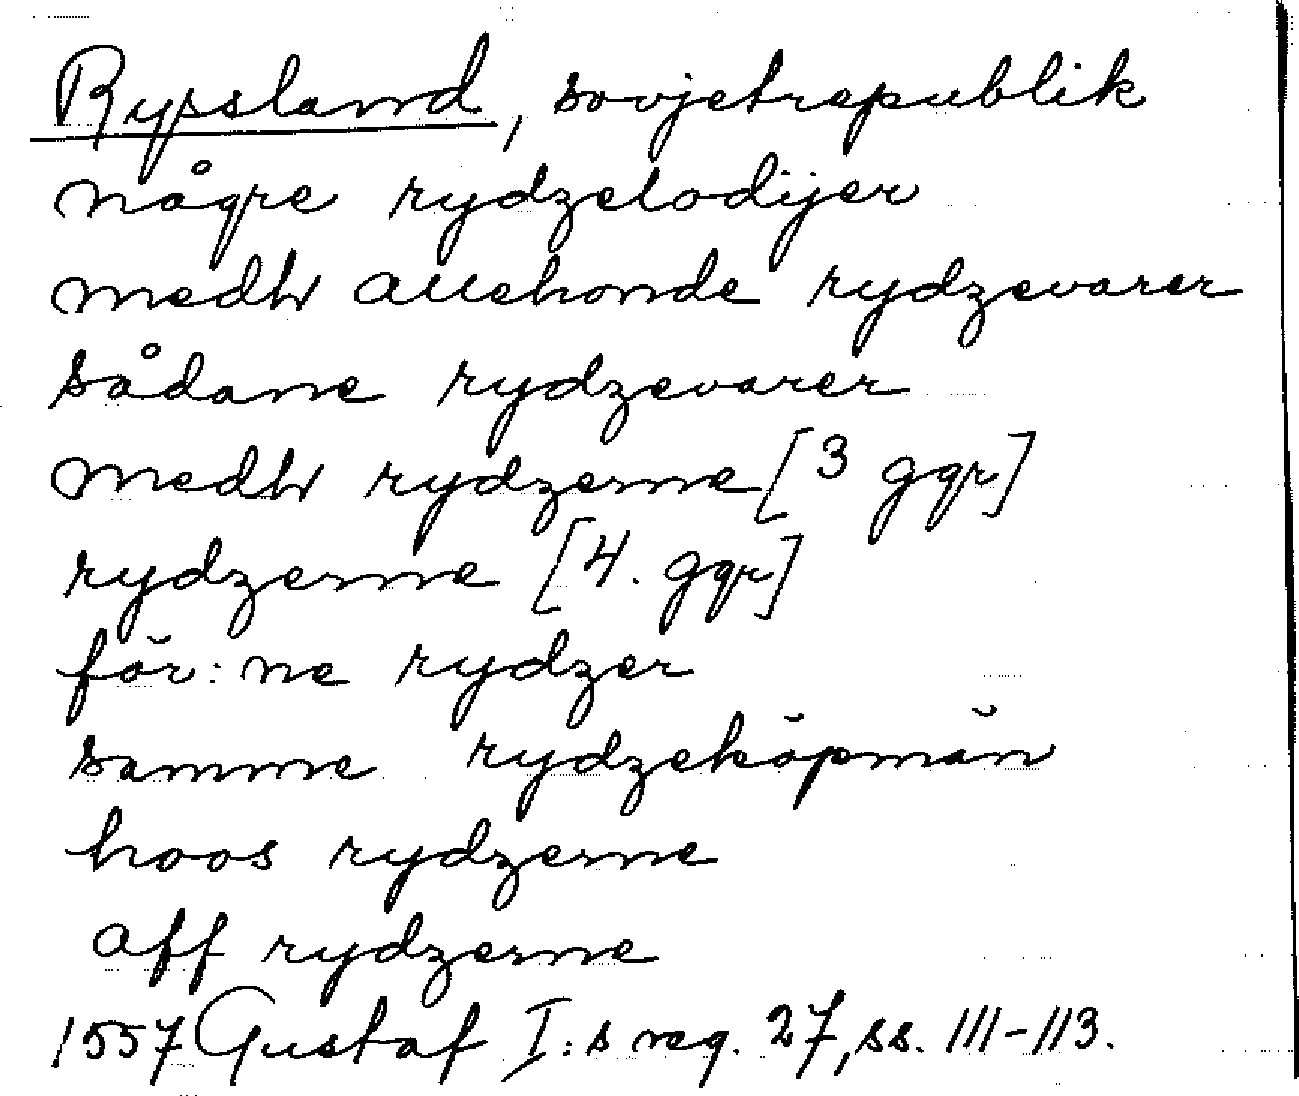 Ryssland, sovjetrepublik
någre rydzelodijer
medh allehonde rydzevarer
sådane rydzevarer
medh rydzerne [3 ggr]
rydzerne [4. ggr]
för: ne rydzer
samme rydzeköpmän
hoos rydzerne
aff rydzerne
1557 Gustaf I:s reg. 27, ss. 111-113.